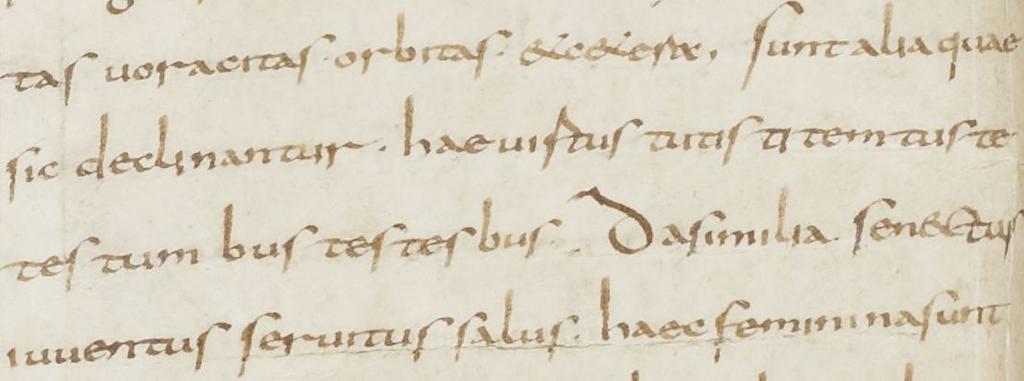 tas uoracitas· orbitas· & c&era, sunt alia quae
sic declinantur· haec uirtus tutis ti tem tus te
tes tum bus tes tes bus· Da similia senectus
iuuentus seruitus salus· haec feminina sunt